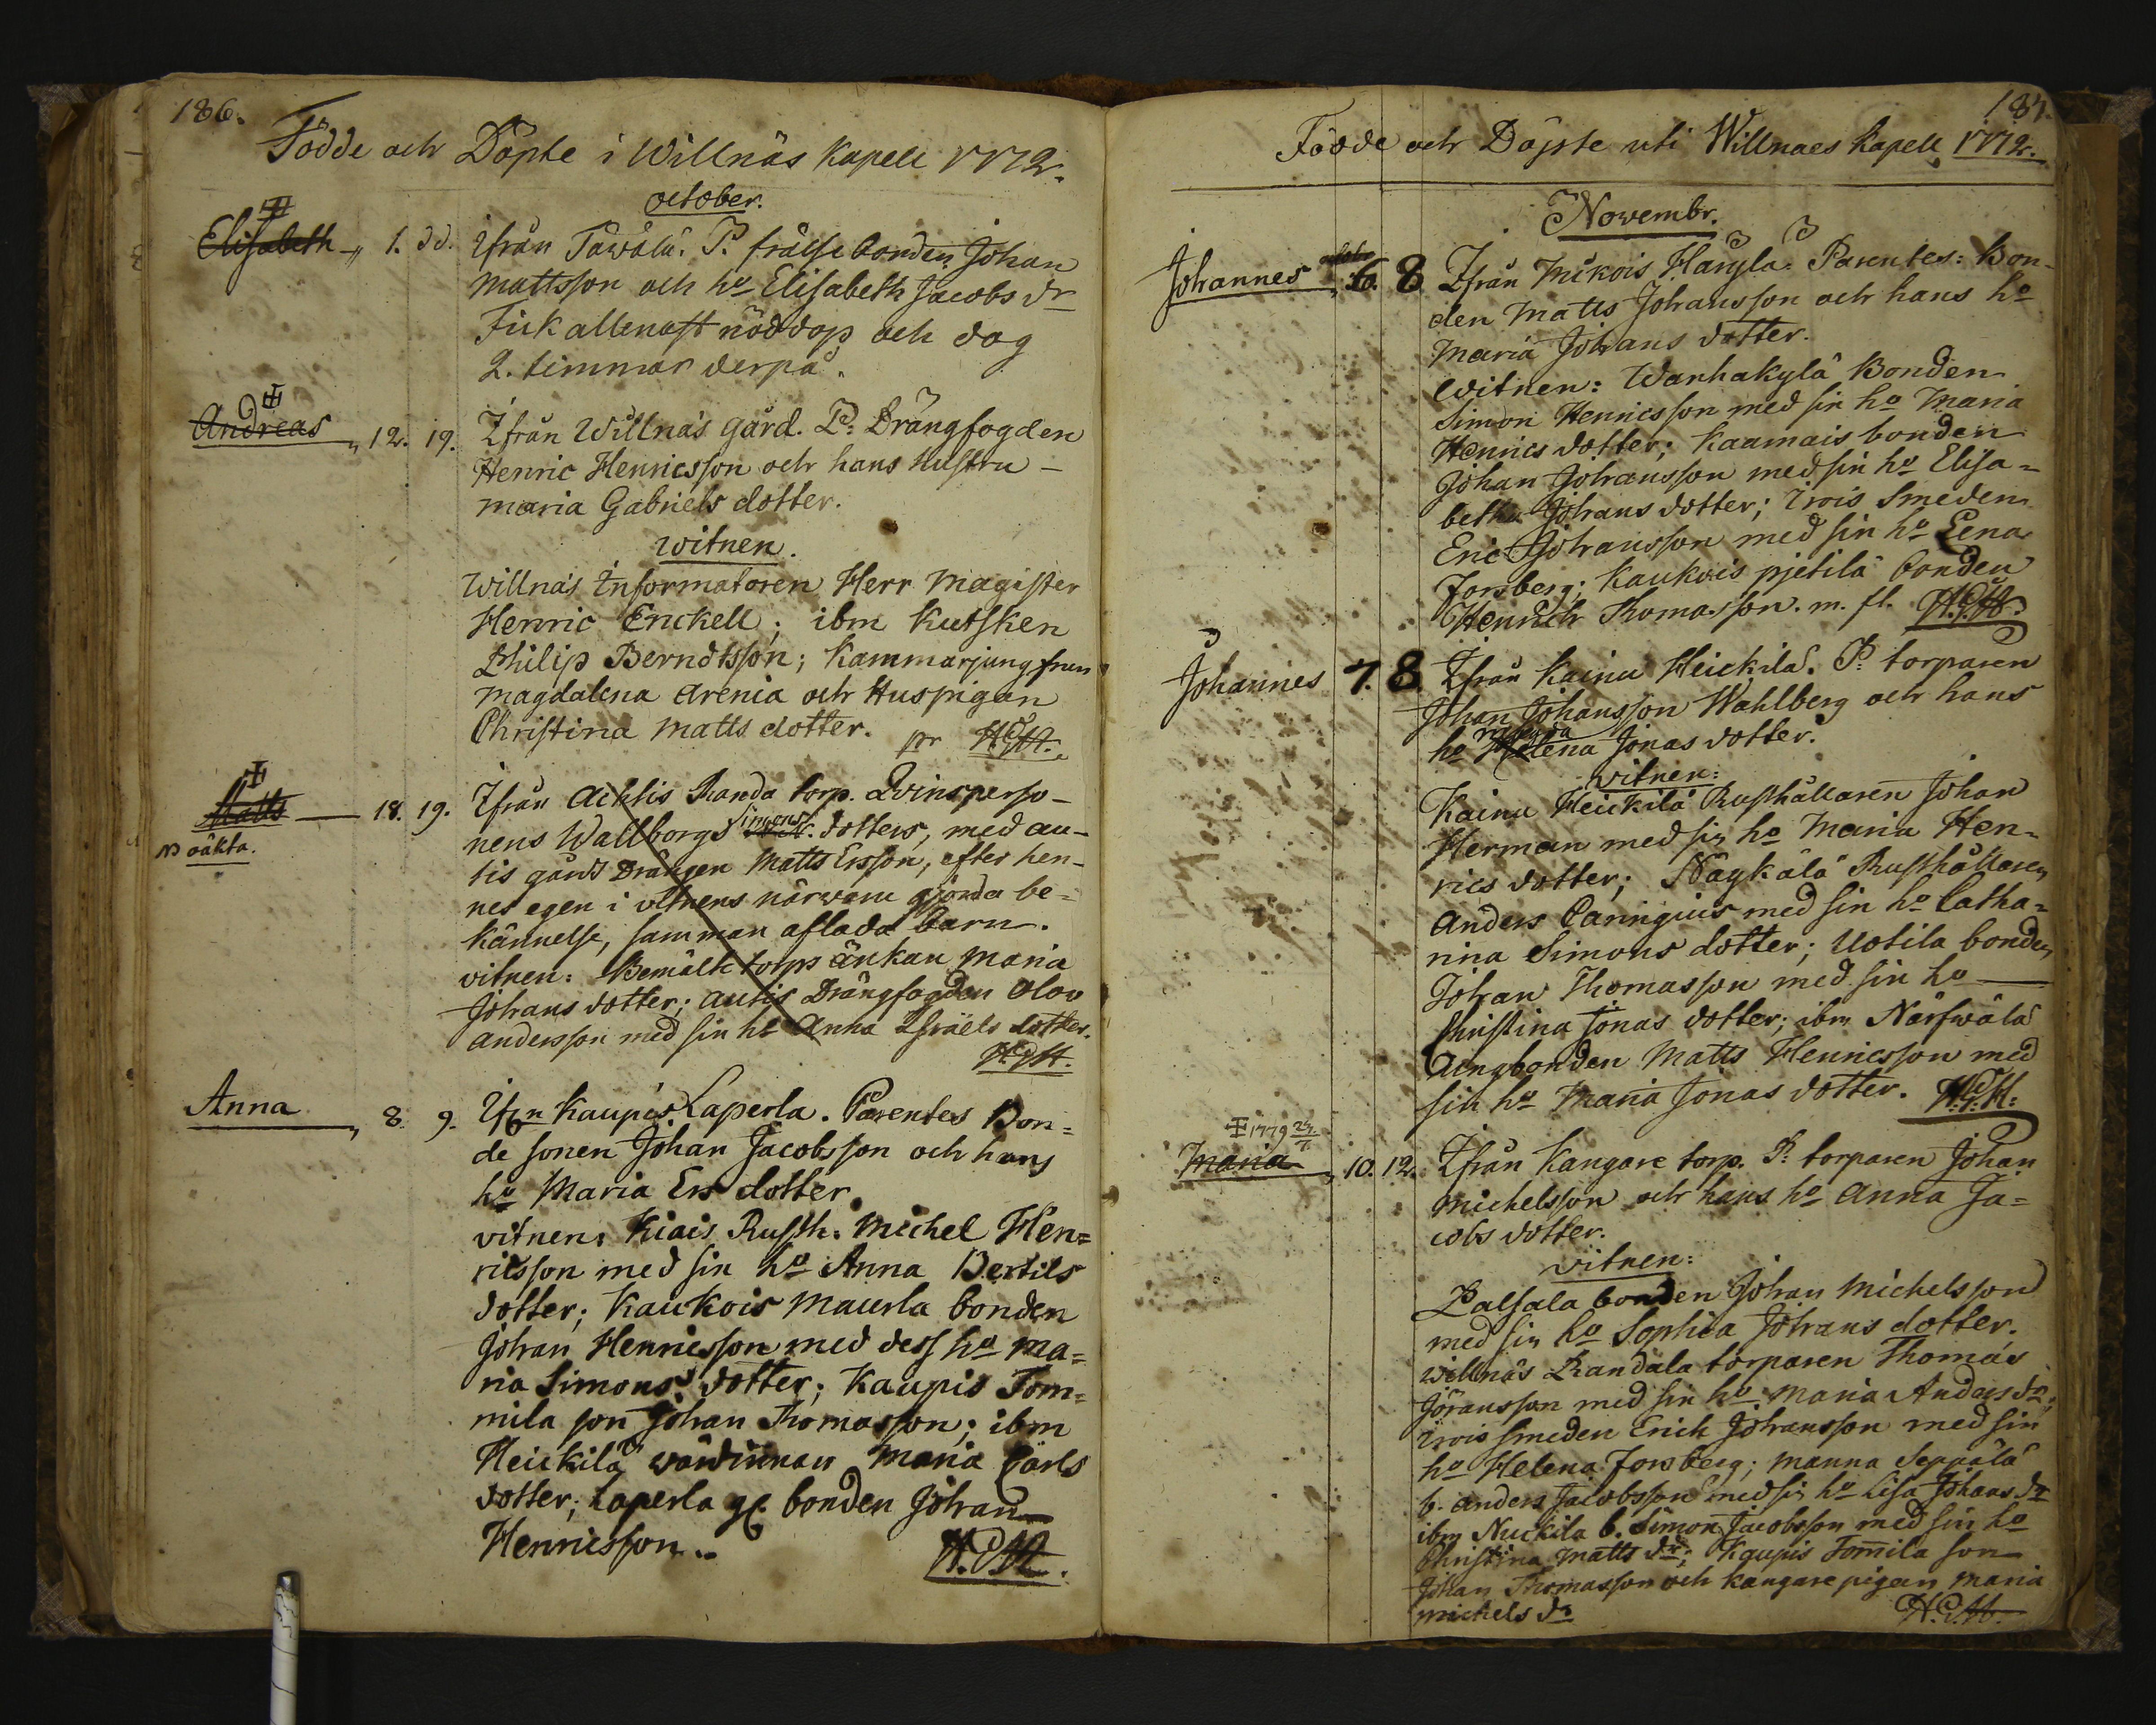 186.
Födde och Döpte i Willnäs Kapell 1772.
october.
Elisabeth " 1. dd. Ifrån Tawäla. P. frälse bonden Johan
Mattsson och ho Elisabeth Jacobs dr
Fick allenast nöddop och dog
2. timmar derpå.
Andreas " 12. 19. Ifrån Willnäs gård. P: Drängfogden
Henric Henricsson och hans hustru –
maria Gabriels dotter.
witnen.
Willnäs Informatoren Herr Magister
Henric Enckell; ibm Kutsken
Philip Berndtsson; Kammarjungfrun
Magdalena Arenia och Huspigan
Christina Matts dotter. pr H.G.H.
Matts — 18. 19. Ifrån Achtis Randa torp. Qvinsperso-
NB oäkta.
nens Wallborgs Simons dotters, med au-
tis gårds Drängen Matts Ersson, efter hen-
nes egen i vitnens närwaru gjorda be-
kännelse, samman aflada barn.
vitnen: Bemälte torps änkan Maria
Johans dotter; autis Drängfogden Olov
andersson med sin ho Anna Israels dotter.
H.G.H.
Anna " 8. 9. Ifrn Kaupis Laperla. Parentes Bon=
de sonen Johan Jacobsson och hans
ho Maria Ers dotter.
vitnen: Kiais Rusth. Michel Hen=
ricsson med sin ho Anna Bertils
dotter; Kaukois Maurla bonden
Johan Henricsson med dess ho Ma=
ria Simons dotter; Kaupis Tom=
mila son Johan Thomasson; ibm
Heickilä wärdinnan Maria Carls
dotter; Laperla gl. bonden Johan
Henricsson..
H.G.H.
187.
Födde och Döpte uti Willnaes Kapell 1772.
Novembr.
Johannes octobr 6. 8. Ifrån Mickois Haryla. Parentes: Bon-
den Matts Johansson och hans ho
Maria Johans dotter.
Witnen: Wanhakylä Bonden
Simon Henricsson med sin ho Maria
Henrics dotter; Kaamais bonden
Johan Johansson med sin ho Elisa=
betha Johans dotter; Irois Smeden
Eric Johansson med sin ho Lena
Forsberg; Kaukois pjetilä bonden
Henrich Thomasson. m. fl. H.G.H.
Johannes 7. 8. Ifrån Kainu Heickilä. P: torparen
Johan Johansson Wahlberg och hans
Maria
ho Helena Jonas dotter.
witnen:
Kainu Heickilä Rusthållaren Johan
Herman med sin ho Maria Hen=
rics dotter; Näykälä Rusthållaren
Anders Canngius med sin ho Catha=
rina Simons dotter; Uotila bonden
Johan Thomasson med sin ho —
Christina Jonas dotter; ibm Närfwälä
Ungbonden Matts Henricsson med
sin ho Maria Jonas dotter. H.G.H.
1779 24/7
Maria " 10. 12. Ifrån Kangare torp. P: torparen Johan
Michelsson och hans ho Anna Ja=
cobs dotter.
vitnen:
Palsala bonden Johan Michelsson
med sin ho Sophia Johans dotter.
Willnäs Randala torparen Thomas
Jöransson med sin ho Maria Anders dr,
Irois smeden Erich Johansson med sin
ho Helena Forsberg; Manna Seppälä
b. Anders Jacobsson med sin ho Lisa Johans dr
ibm Nuckila b. Simon Jacobsson med sin ho
Christina Matts dr; Kaupis Tomila son
Johan Thomasson och Kangare pigan Maria
Michels dr H.G.H.